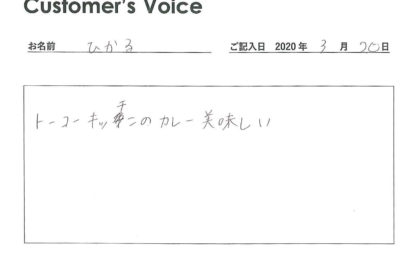 Customer's Voice
お名前 ひかる ご記入日 2020年 3月 20日
トーコーキッチンのカレー美味しい